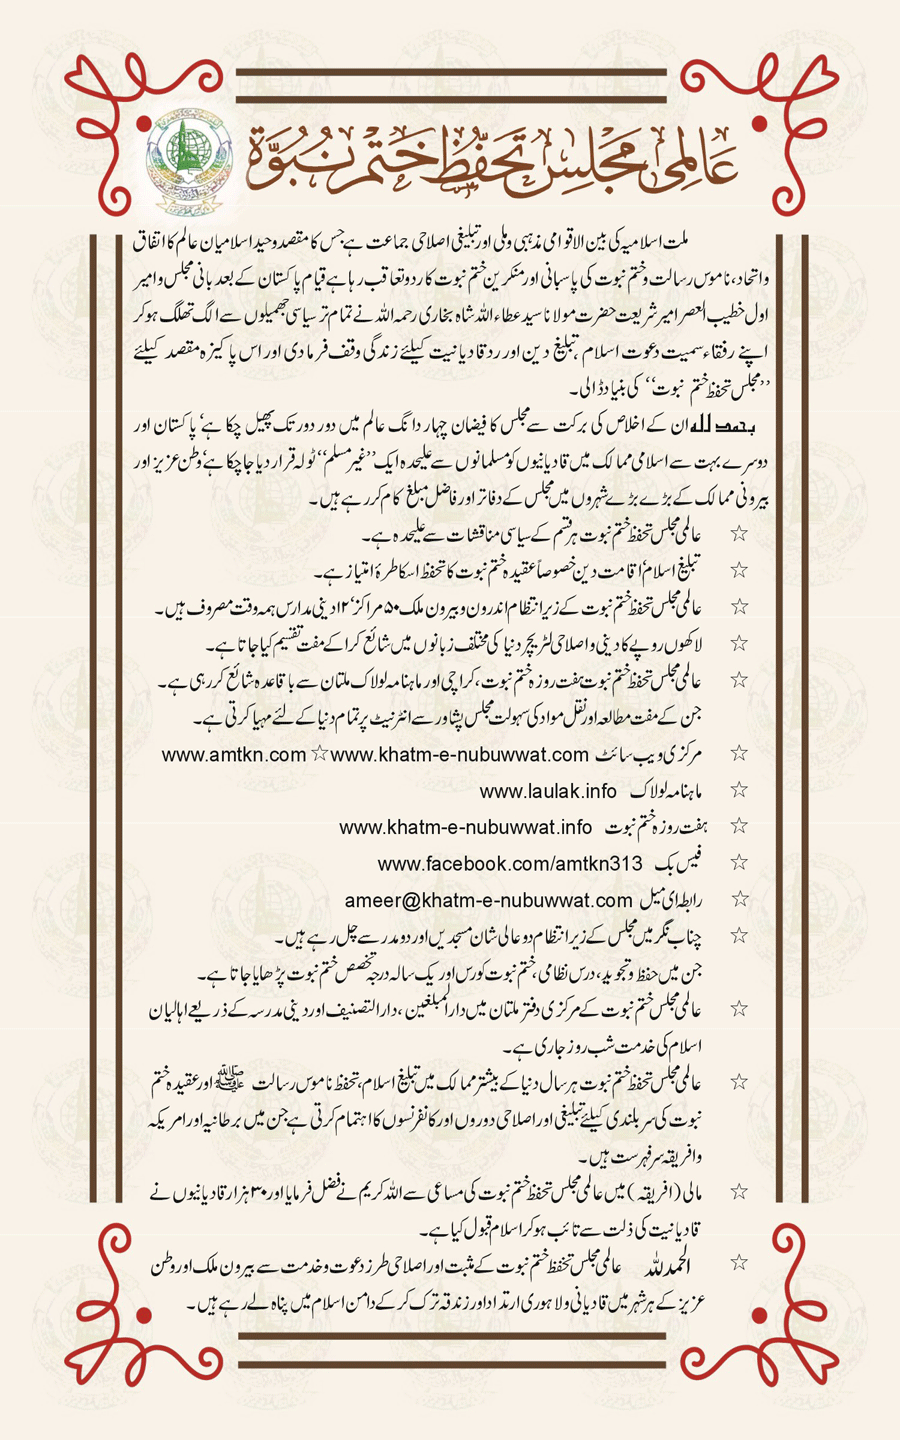 عالمی مجلس تحفظ ختم نبوۃ
ملت اسلامیہ کی بین الاقوامی مذہبی وملی اور تبلیغی اصلاحی جماعت ہے جس کا مقصد وحید اسلامیان عالم کا اتفاق
واتحاد، ناموس رسالت وختم نبوت کی پاسبانی اور منکرین ختم نبوت کا ردو تعاقب رہا ہے قیام پاکستان کے بعد بانی مجلس و امیر
اول خطیب العصر امیر شریعت حضرت مولانا سید عطاء اللہ شاہ بخاری رحمہ اللہ نے تمام تر سیاسی جھمیلوں سے الگ تھلگ ہو کر
اپنے رفقاء سمیت دعوت اسلام ،تبلیغ دین اور رد قادیانیت کیلئے زندگی وقف فرما دی اور اس پاکیزہ مقصد کیلئے
’’مجلس تحفظ ختم نبوت‘‘ کی بنیاد ڈالی۔
بحمدللہ ان کے اخلاص کی برکت سے مجلس کا فیضان چہار دانگ عالم میں دور دور تک پھیل چکا ہے‘ پاکستان اور
دوسرے بہت سے اسلامی ممالک میں قادیانیوں کو مسلمانوں سے علیحدہ ایک ’’غیر مسلم‘‘ ٹولہ قرار دیا جا چکا ہے‘ وطن عزیز اور
بیرونی ممالک کے بڑے بڑے شہروں میں مجلس کے دفاتر اور فاضل مبلغ کام کر رہے ہیں۔
☆ عالمی مجلس تحفظ ختم نبوت ہر قسم کے سیاسی مناقشات سے علیحدہ ہے۔
☆ تبلیغ اسلام‘ اقامت دین خصوصاً عقیدہ ختم نبوت کا تحفظ اسکا طرۂ امتیاز ہے۔
☆ عالمی مجلس تحفظ ختم نبوت کے زیر انتظام اندرون و بیرون ملک ۵۰ مراکز‘ ۱۲ دینی مدارس ہمہ وقت مصروف ہیں۔
☆ لاکھوں روپے کا دینی و اصلاحی لٹریچر دنیا کی مختلف زبانوں میں شائع کرا کے مفت تقسیم کیا جاتا ہے۔
☆ عالمی مجلس تحفظ ختم نبوت ہفت روزہ ختم نبوت، کراچی اور ماہنامہ لولاک ملتان سے باقاعدہ شائع کر رہی ہے۔
جن کے مفت مطالعہ اور نقل مواد کی سہولت مجلس پشاور سے انٹرنیٹ پر تمام دنیا کے لئے مہیا کرتی ہے۔
☆ مرکزی ویب سائٹ www.khatm-e-nubuwwat.com☆ www.amtkn.com
☆ ماہنامہ لولاک www.laulak.info
☆ ہفت روزہ ختم نبوت www.khatm-e-nubuwwat.info
☆ فیس بک www.facebook.com/amtkn313
☆ رابطہ ای میل ameer@khatm-e-nubuwwat.com
☆ چناب نگر میں مجلس کے زیر انتظام دو عالی شان مسجدیں اور دو مدرسے چل رہے ہیں۔
جن میں حفظ وتجوید، درس نظامی، ختم نبوت کورس اور یک سالہ درجہ تخصص ختم نبوت پڑھایا جاتا ہے۔
☆ عالمی مجلس ختم نبوت کے مرکزی دفتر ملتان میں دارالمبلغین ،دارالتصنیف اور دینی مدرسہ کے ذریعے اہالیان
اسلام کی خدمت شب روز جاری ہے۔
☆ عالمی مجلس تحفظ ختم نبوت ہر سال دنیا کے بیشتر ممالک میں تبلیغ اسلام، تحفظ ناموس رسالت ﷺ اور عقیدہ ختم
نبوت کی سربلندی کیلئے تبلیغی اور اصلاحی دوروں اور کانفرنسوں کا اہتمام کرتی ہے جن میں برطانیہ اور امریکہ
وافریقہ سرفہرست ہیں۔
☆ مالی (افریقہ) میں عالمی مجلس تحفظ ختم نبوت کی مساعی سے اللہ کریم نے فضل فرمایا اور ۳۰ ہزار قادیانیوں نے
قادیانیت کی ذلت سے تائب ہو کر اسلام قبول کیا ہے۔
☆ الحمدللہ عالمی مجلس تحفظ ختم نبوت کے مثبت اور اصلاحی طرز دعوت وخدمت سے بیرون ملک اور وطن
عزیز کے ہر شہر میں قادیانی ولاہوری ارتداد اور زندقہ ترک کر کے دامن اسلام میں پناہ لے رہے ہیں۔